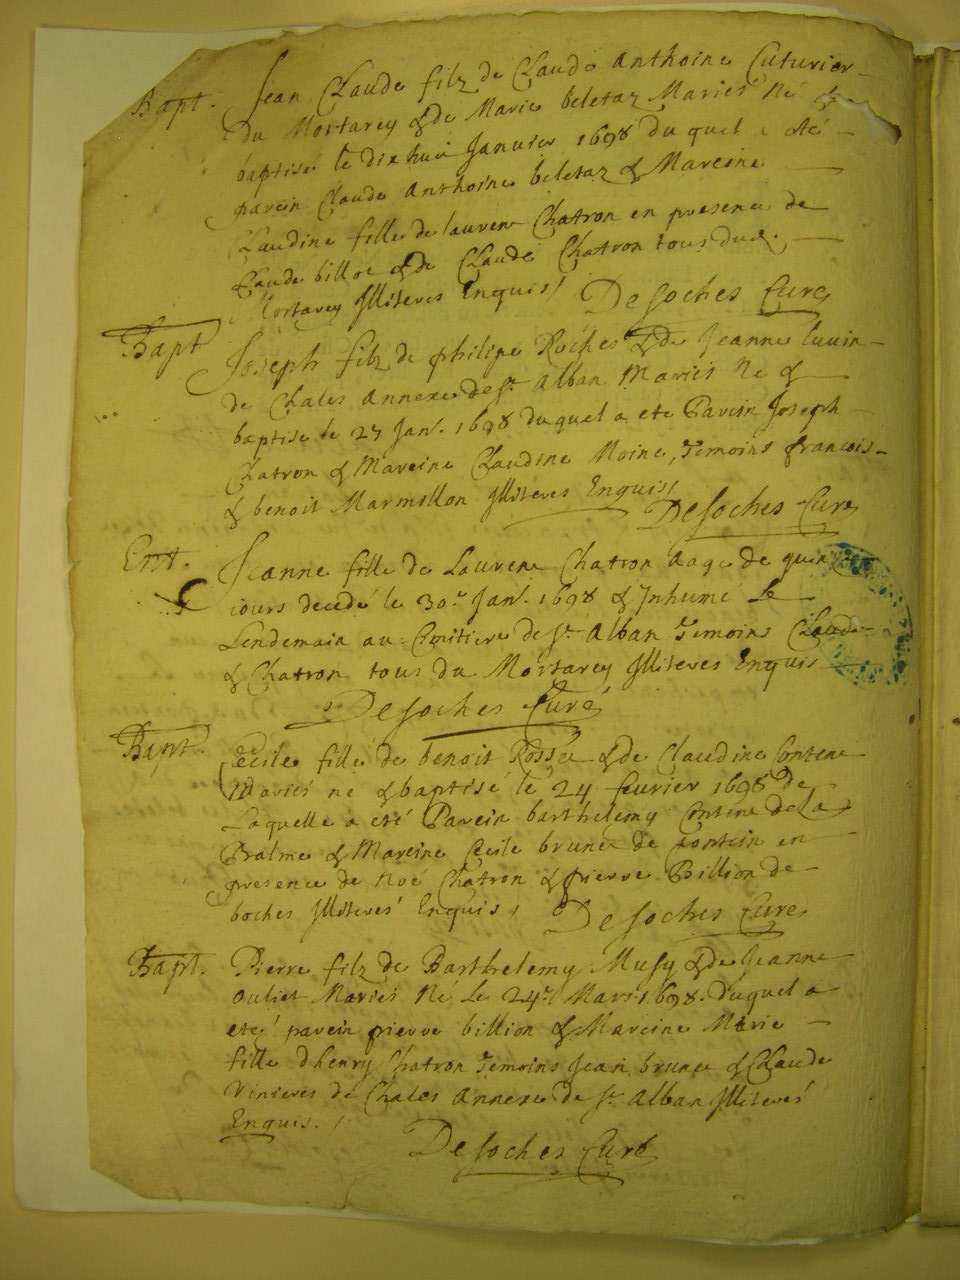 Bapt. Jean Claude filz de Claude Anthoine Cuturier
du Mortarey & de Marie beletaz Mariés Né &
baptisé le dix huit Janvier 1698 du quel a eté
parein Claude Anthoine beletaz & Mareine
Claudine fille de laurent Chatron en presence de
Claude billoe & de Claude Chatron tous du
Mortarey Illiteres Enquis /
Desoches Curé
Bapt Joseph filz de philipe Roches & de Jeanne
de Chales Annexe de St. Alban Mariés Né &
baptise le 27 Janv. 1698 duquel a eté Parein Joseph
Chatron & Mareine Claudine Moine, Temoins francois
& benoit Marmillon Illiteres Enquis /
Desoches Curé
Ent. Jeanne fille de Laurent Chatron Aagé de
jours decedé le 30e. Janv. 1698 & Inhumé Le
Lendemain au Cmitiere de St. Alban Temoins Claude
& Chatron tous du Mortarey Illiteres Enquis
Desoches Curé
Bapt. Cecile fille de benoit Rosset & de Claudine Contene
Mariés né & baptisé le 24 fevrier 1698 de
Laquelle a eté Parein barthelemy Contene de La
Balme & Mareine Cecile brunet de en
presence de Noé Chatron & pierre Billion de
boches Illiteres Enquis /
Desoches Curé
Bapt. Pierre filz de Barthelemy Musy & de Jeanne
ouliet Mariés Né Le 24e. Mars 1698. duquel a
eté parein pierre billion & Mareine Marie
fille dhenry Chatron Temoins Jean brunet & Claude
Viniere de Chales Annexe de St. Alban Illiteres
Enquis. /
Desoches Curé